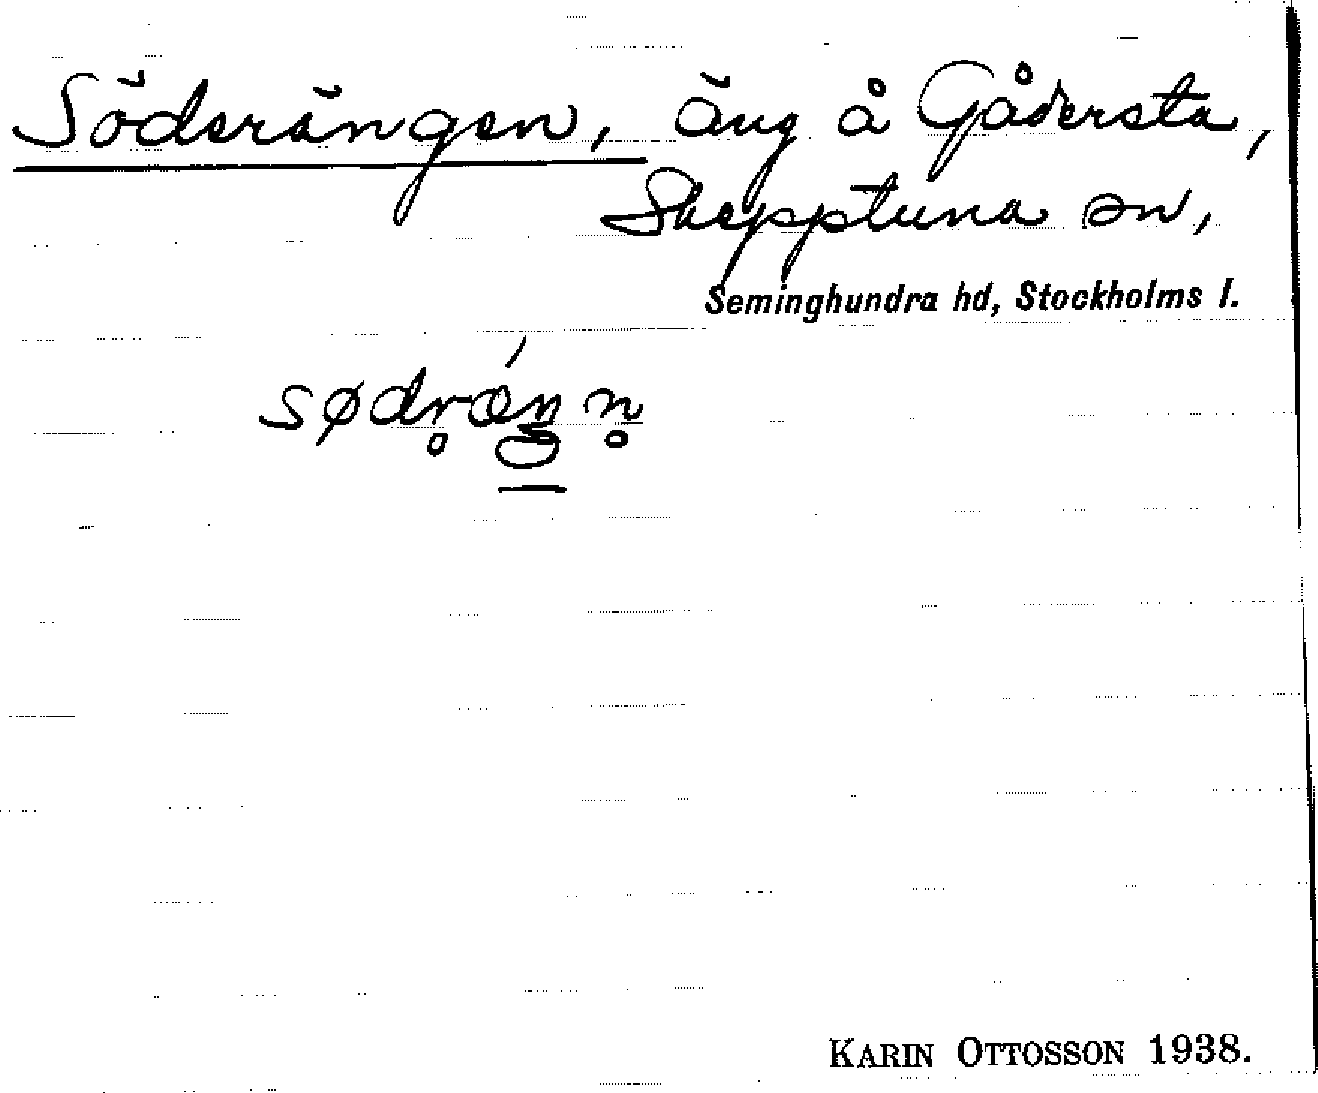 Söderängen, äng å Gådersta,
Skepptuna sn,
Seminghundra hd, Stockholms l.
KARIN OTTOSSON 1938.